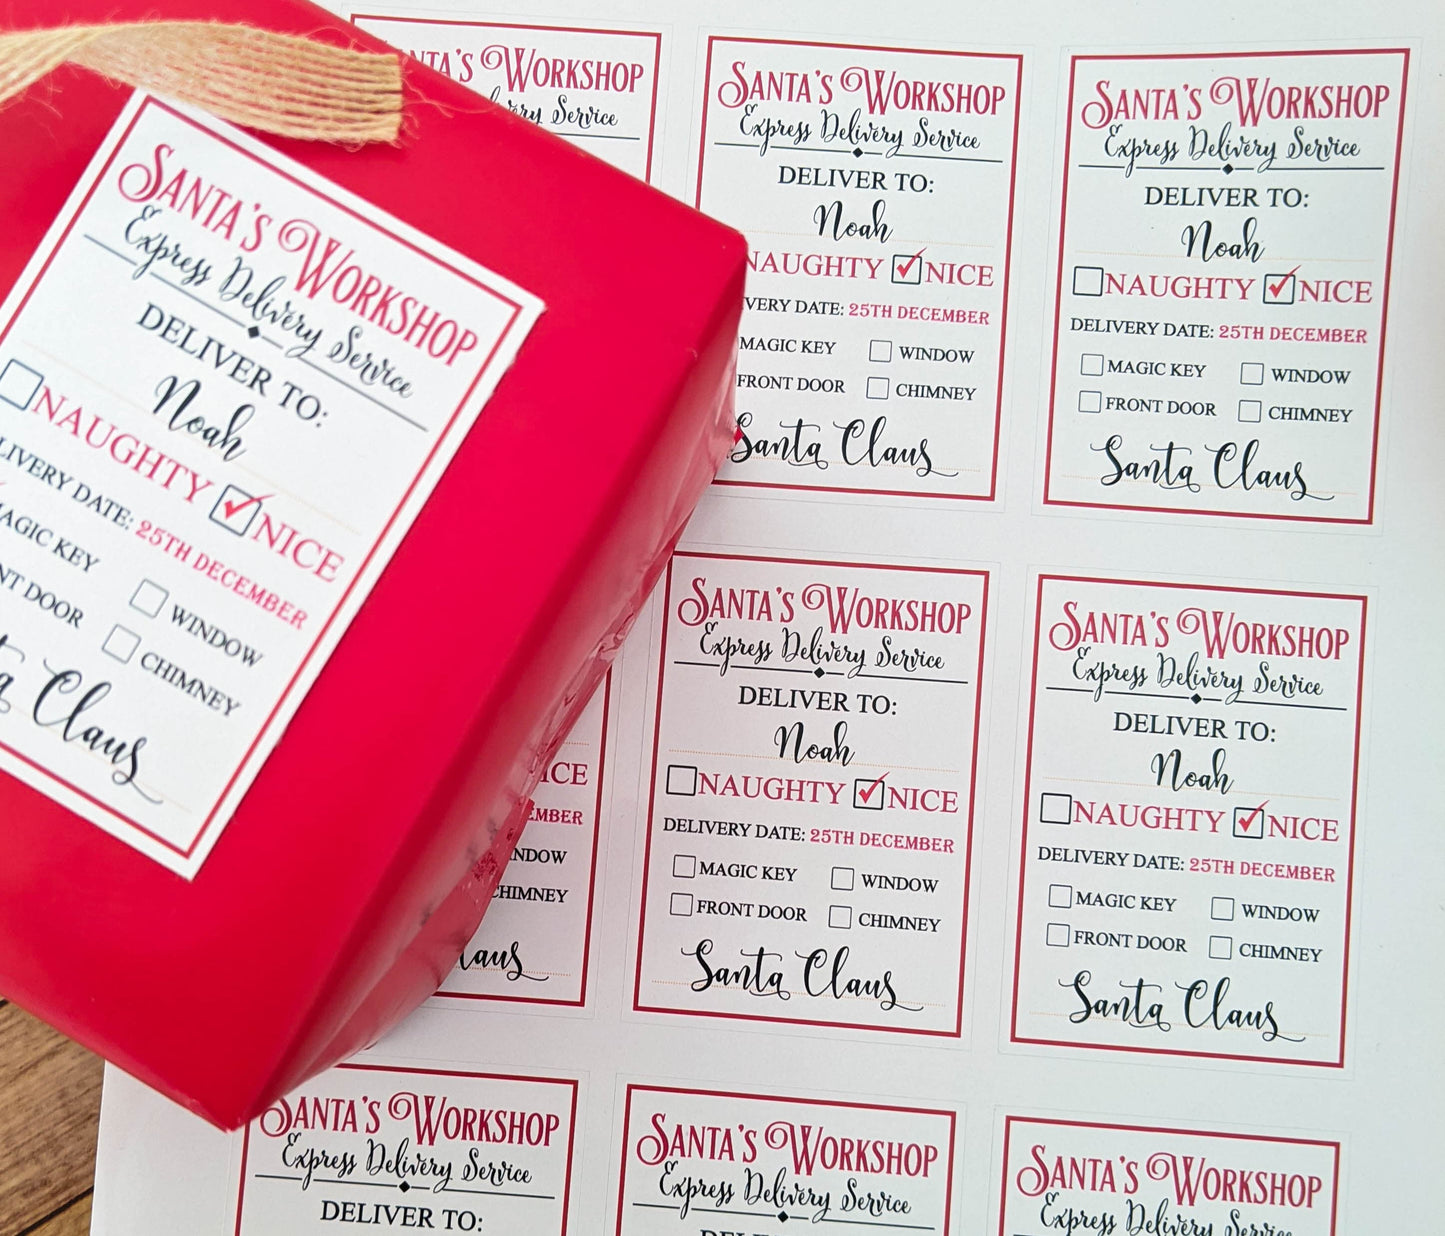 SANTA'S WORKSHOP
Express Delivery Service
DELIVER TO:
Noah
NAUGHTY NICE
DATE: 25TH DECEMBER
KEY WINDOW
DOOR CHIMNEY
Claus
WORKSHOP
Service
SANTA'S WORKSHOP
Express Delivery Service
DELIVER TO:
Noah
NAUGHTY NICE
DATE: 25TH DECEMBER
MAGIC KEY WINDOW
FRONT DOOR CHIMNEY
Santa Claus
SANTA'S WORKSHOP
Express Delivery Service
DELIVER TO:
Noah
NAUGHTY NICE
DELIVERY DATE: 25TH DECEMBER
MAGIC KEY WINDOW
FRONT DOOR CHIMNEY
Santa Claus
SANTA'S WORKSHOP
Express Delivery Service
DELIVER TO:
Noah
NAUGHTY NICE
DELIVERY DATE: 25TH DECEMBER
MAGIC KEY WINDOW
FRONT DOOR CHIMNEY
Santa Claus
SANTA'S WORKSHOP
Express Delivery Service
DELIVER TO:
Noah
NAUGHTY NICE
DELIVERY DATE: 25TH DECEMBER
MAGIC KEY WINDOW
FRONT DOOR CHIMNEY
Santa Claus
CHIMNEY
SANTA'S WORKSHOP
Express Delivery Service
DELIVER TO:
SANTA'S WORKSHOP
Express Delivery Service
SANTA'S WORKSHOP
Express Delivery Service